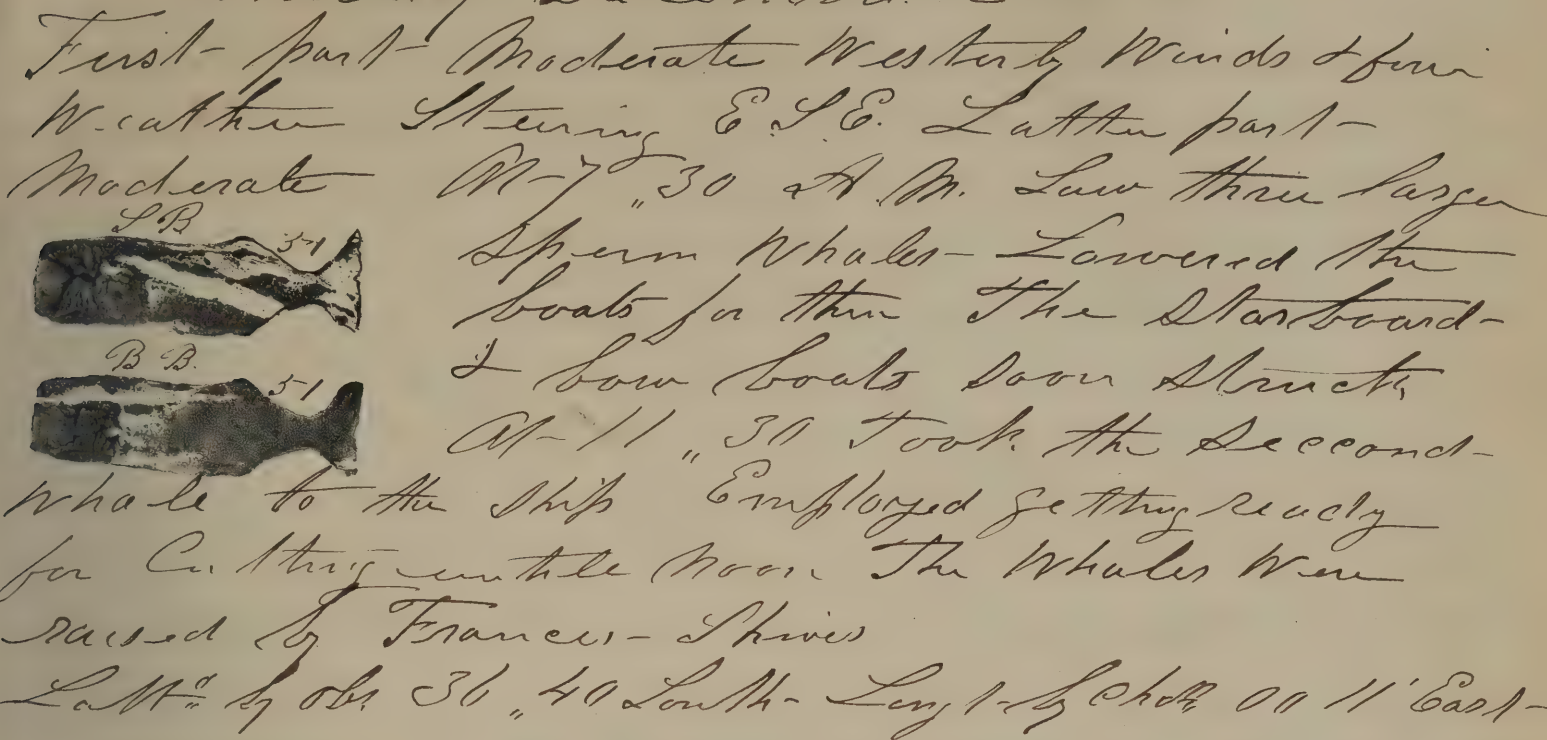 First part Moderate Westerly Winds & fine
Weather Steering E.S.E. Latter part
Moderate At 7,,30 A.M. Saw three large
S B
51
Sperm Whales - Lowered the
boats for them The Starboard
B B.
51
& bow boats soon Struck
At 11,,30 Took the Seccond
whale to the Ship Employed getting ready
for Cutting untile Noon The Whales Were
raised by Frances Shives
Lattd by obs 36,,40 South - Longt by Chotr 00 11' East